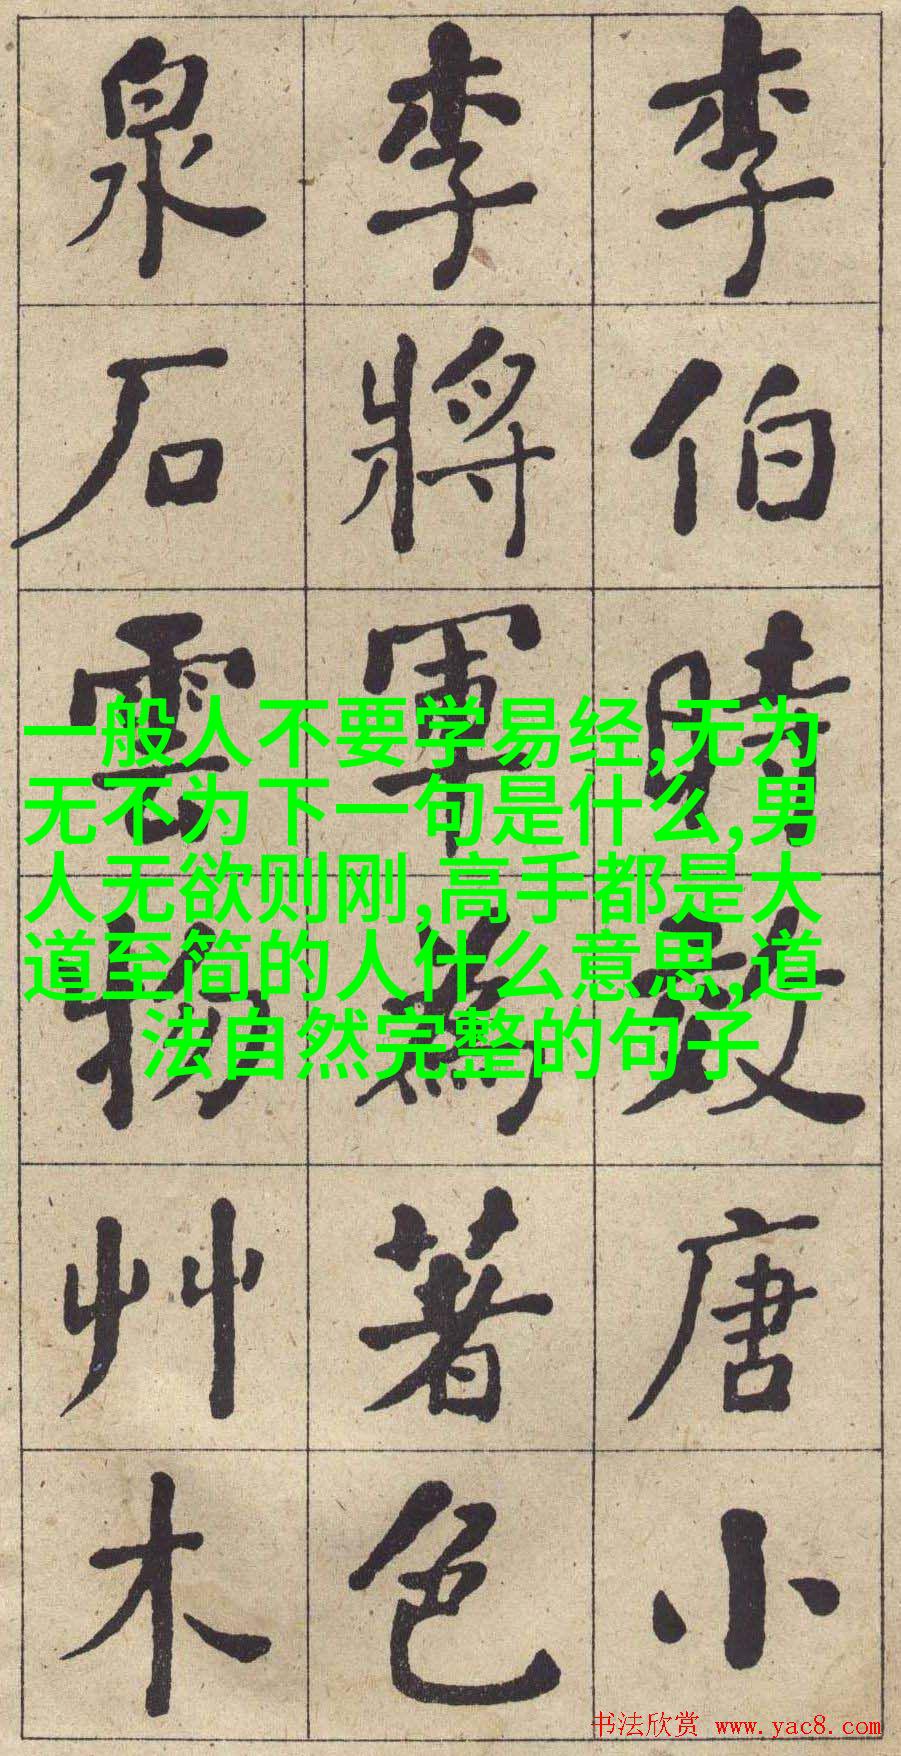 李伯時效唐小
李將軍為著色
泉石雲物艸木
一般人不要学易经,无为
无不为下一句是什么,男
人无欲则刚,高手都是大
道至简的人什么意思,道
法自然完整的句子
书法欣赏 www.yac8.com